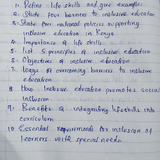 1. Define life skills and give examples.
2. State four barriers to inclusive education
3. State two national policies supporting
inclusive education in Kenya
4. Importance of life skills.
5. List 3 principles of inclusive education
6. Objectives of inclusive education
7. Ways of overcoming barriers to inclusive
education.
8. How inclusive education promotes social
inclusion
9. Benefits of integrating lifeskills into
curriculum
10. Essential requirements for inclusion of
learners with special needs